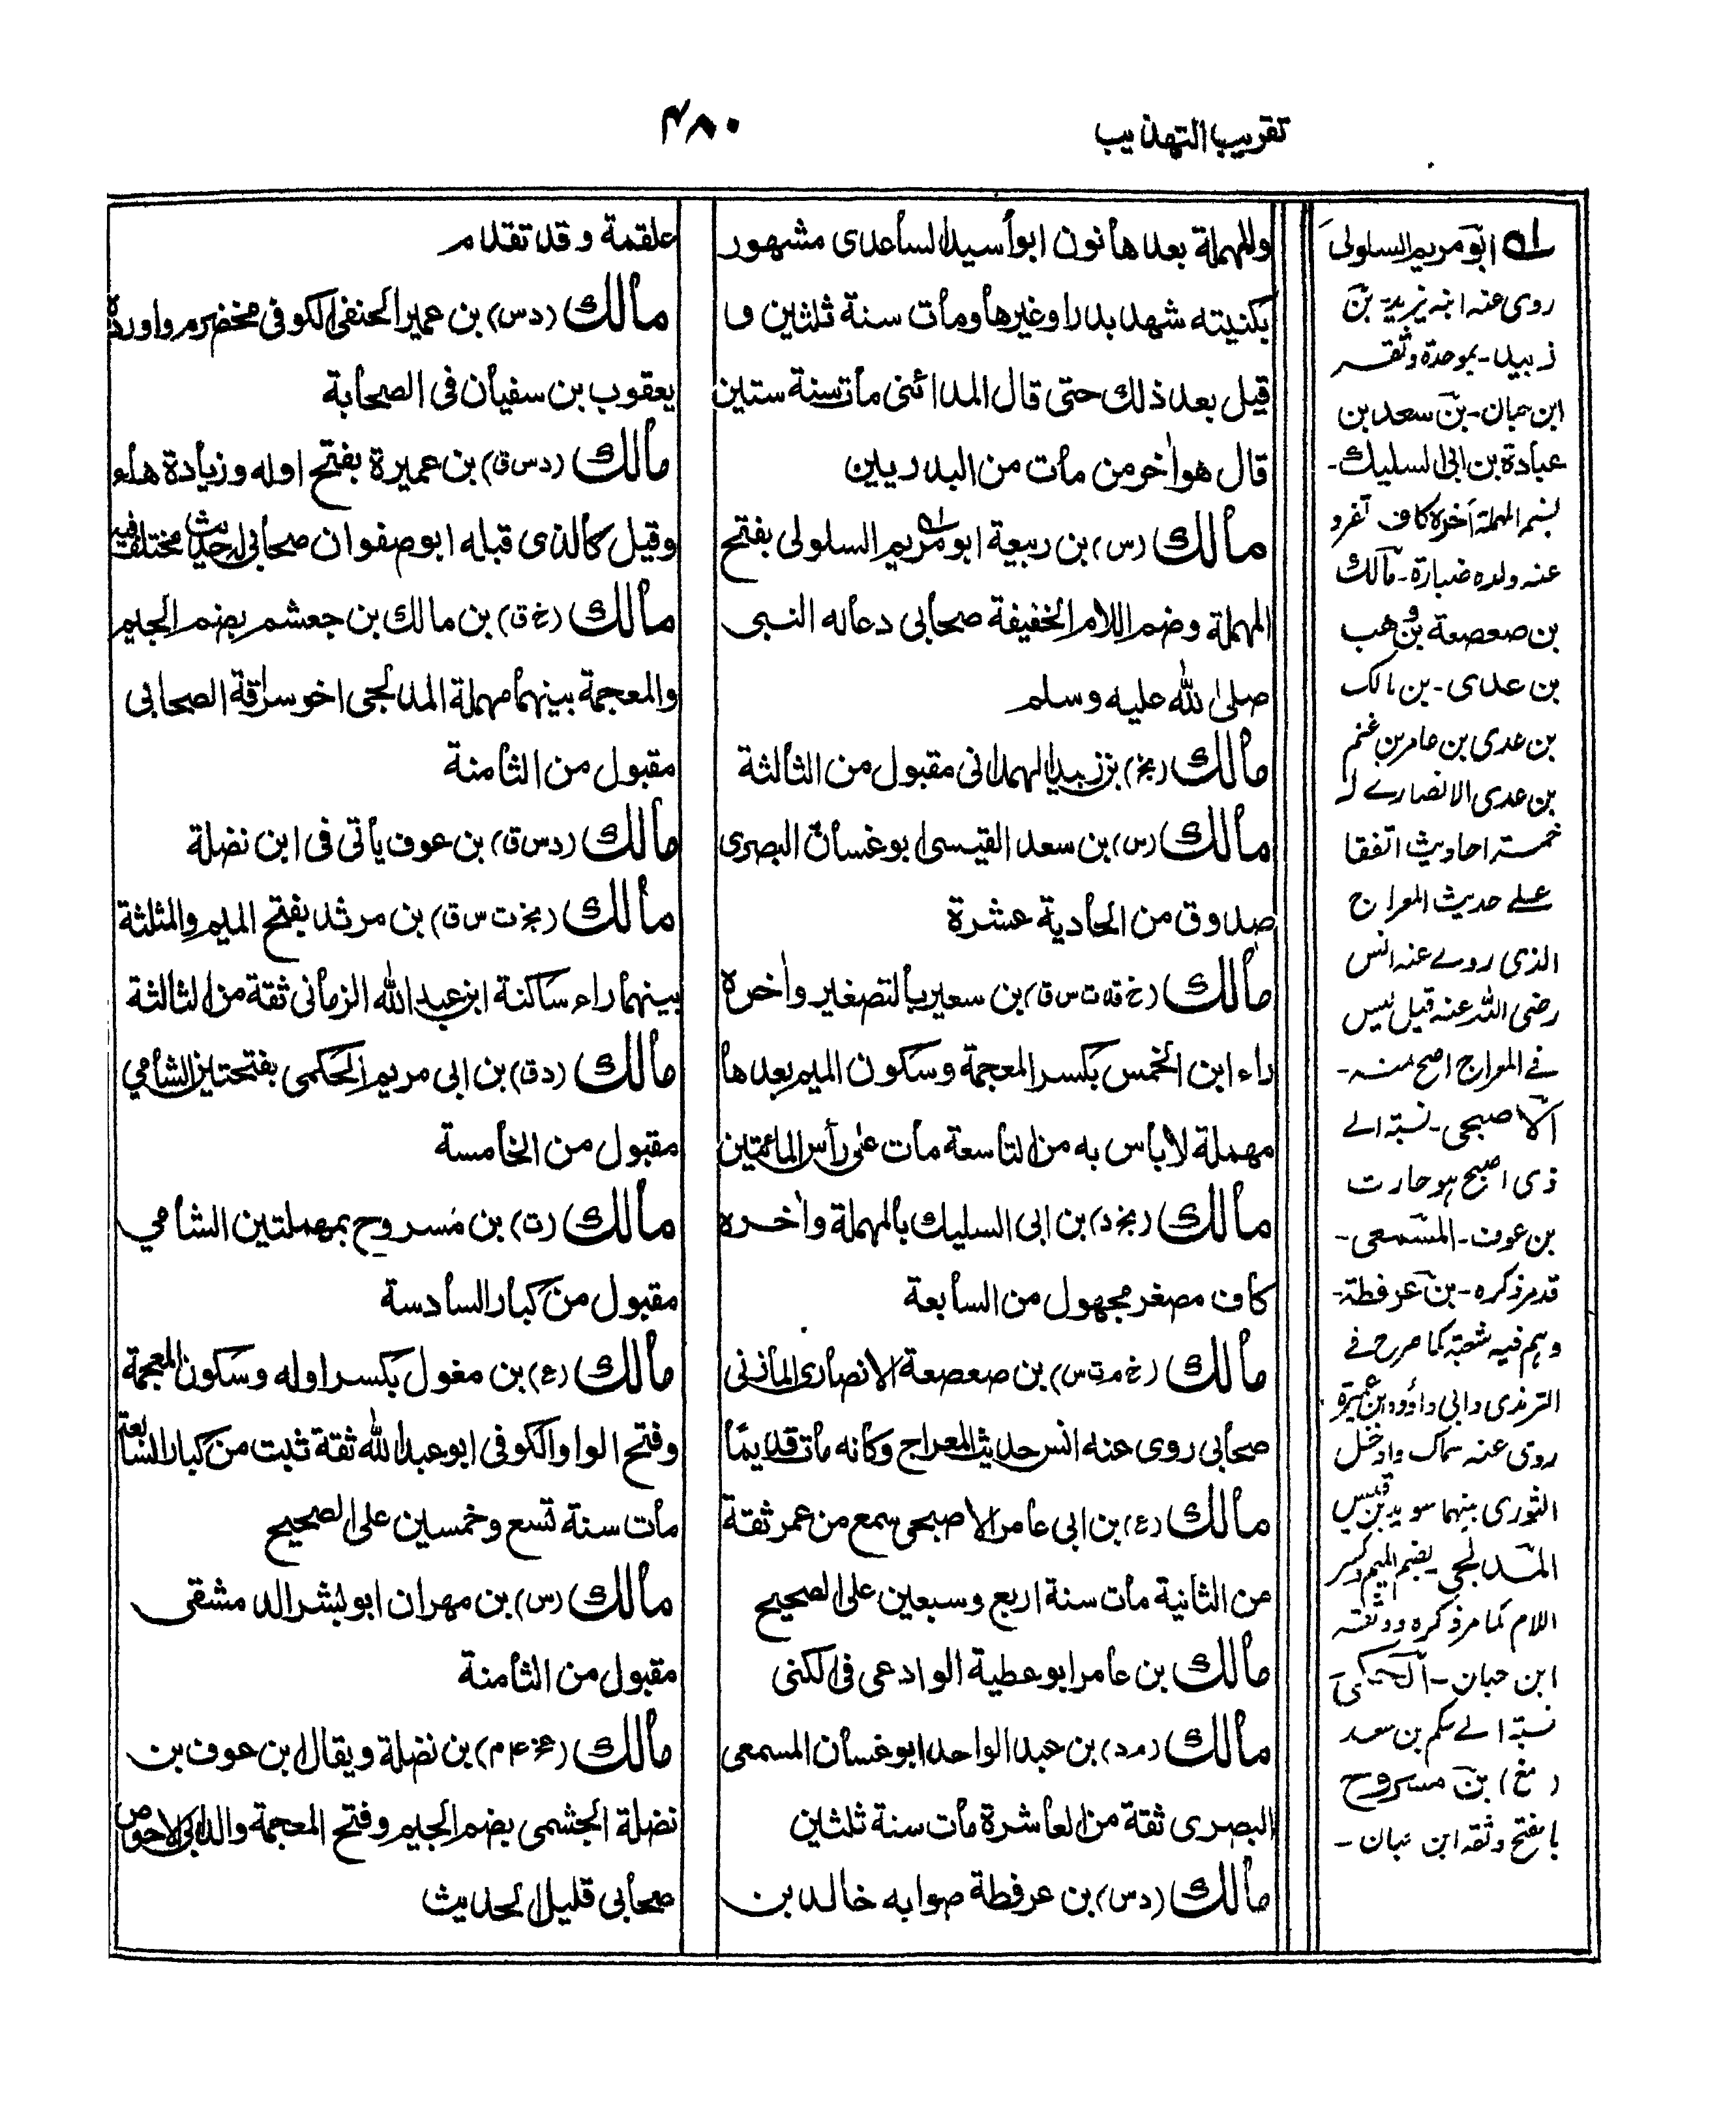 تقريب التهذيب
۴۸۰
والمهملة بعدها نون ابو أسيد الساعدى مشهور
بكنيته شهد بدرا وغيرها ومات سنة ثلثين و
قيل بعد ذلك حتى قال المدائنى مات سنة ستين
قال هو اٰخر من مات من البدريين
مالك (س) بن ربيعة ابو مريم السلولى بفتح
المهملة وضم اللام الخفيفة صحابى دعا له النبى
صلى الله عليه وسلم
مالك (بخ) بن زبيد الهمدانى مقبول من الثالثة
مالك (س) بن سعد القيسى ابو غسان البصرى
صدوق من الحادية عشرة
مالك (خ قد ت س ق) بن سعير بالتصغير واٰخره
راء ابن الخمس بكسر المعجمة وسكون الميم بعدها
مهملة لا باس به من التاسعة مات على رأس المائتين
مالك (بخ د) بن ابى السليك بالمهملة واٰخره
كاف مصغر مجهول من السابعة
مالك (خ م ت س) بن صعصعة الانصارى المازنى
صحابى روى عنه انس حديث المعراج وكأنه مات قديمًا
مالك (ع) بن ابى عامر الاصبحى سمع من عمر ثقة
من الثانية مات سنة اربع وسبعين على الصحيح
مالك بن عامر ابو عطية الوادعى فى الكنى
مالك (م د) بن عبد الواحد ابو غسان المسمعى
البصرى ثقة من العاشرة مات سنة ثلثين
مالك (د س) بن عرفطة صوابه خالد بن
علقمة وقد تقدم
مالك (د س) بن عمير الحنفى الكوفى مخضرم واورده
يعقوب بن سفيان فى الصحابة
مالك (د س ق) بن عميرة بفتح اوله وزيادة هاء
وقيل كالذى قبله ابو صفوان صحابى له حديث مختلف فيه
مالك (خ ق) بن مالك بن جعشم بضم الجيم
والمعجمة بينهما مهملة المدلجى اخو سراقة الصحابى
مقبول من الثامنة
مالك (د س ق) بن عوف يأتى فى ابن نضلة
مالك (بخ ت س ق) بن مرثد بفتح الميم والمثلثة
بينهما راء ساكنة ابن عبد الله الزمانى ثقة من الثالثة
مالك (د ق) بن ابى مريم الحكمى بفتحتين الشامي
مقبول من الخامسة
مالك (ت) بن مسروح بمهملتين الشامي
مقبول من كبار السادسة
مالك (ع) بن مغول بكسر اوله وسكون المعجمة
وفتح الواو الكوفى ابو عبد الله ثقة ثبت من كبار السابعة
مات سنة تسع وخمسين على الصحيح
مالك (س) بن مهران ابو بشر الدمشقى
مقبول من الثامنة
مالك (عخ م ۴) بن نضلة ويقال ابن عوف بن
نضلة الجشمى بضم الجيم وفتح المعجمة والد ابى الاحوص
صحابى قليل الحديث
ابو مريم السلولى
روى عنه ابنه يزيد - بن
زبيد - بموحدة وثقه
ابن حبان - بن سعد بن
عبادة بن ابى السليك -
بضم المهملة آخره كاف تفرد
عنه ولده ضبارة - مالك
بن صعصعة بن وهب
بن عدى - بن مالك
بن عدى بن عامر بن غنم
بن عدى الانصارے له
خمسة احاديث اتفقا
علے حديث المعراج
الذى روے عنه انس
رضى الله عنه قيل ليس
فے المعراج اصح منه -
الاصبحى - نسبة الے
ذى اصبح هو حارث
بن عوف - المسمعى -
قد مر ذكره - بن عرفطة -
وهم فيه شعبة كما صرح فے
الترمذى وابى داؤد - بن عميرة
روى عنه سماك وادخل
الثورى بينهما سويد بن قيس
المدلجى - بضم الميم وكسر
اللام كما مر ذكره ووثقه
ابن حبان - الحكمى
نسبة الے حكم بن سعد
بن مسروح
بالفتح وثقه ابن حبان -